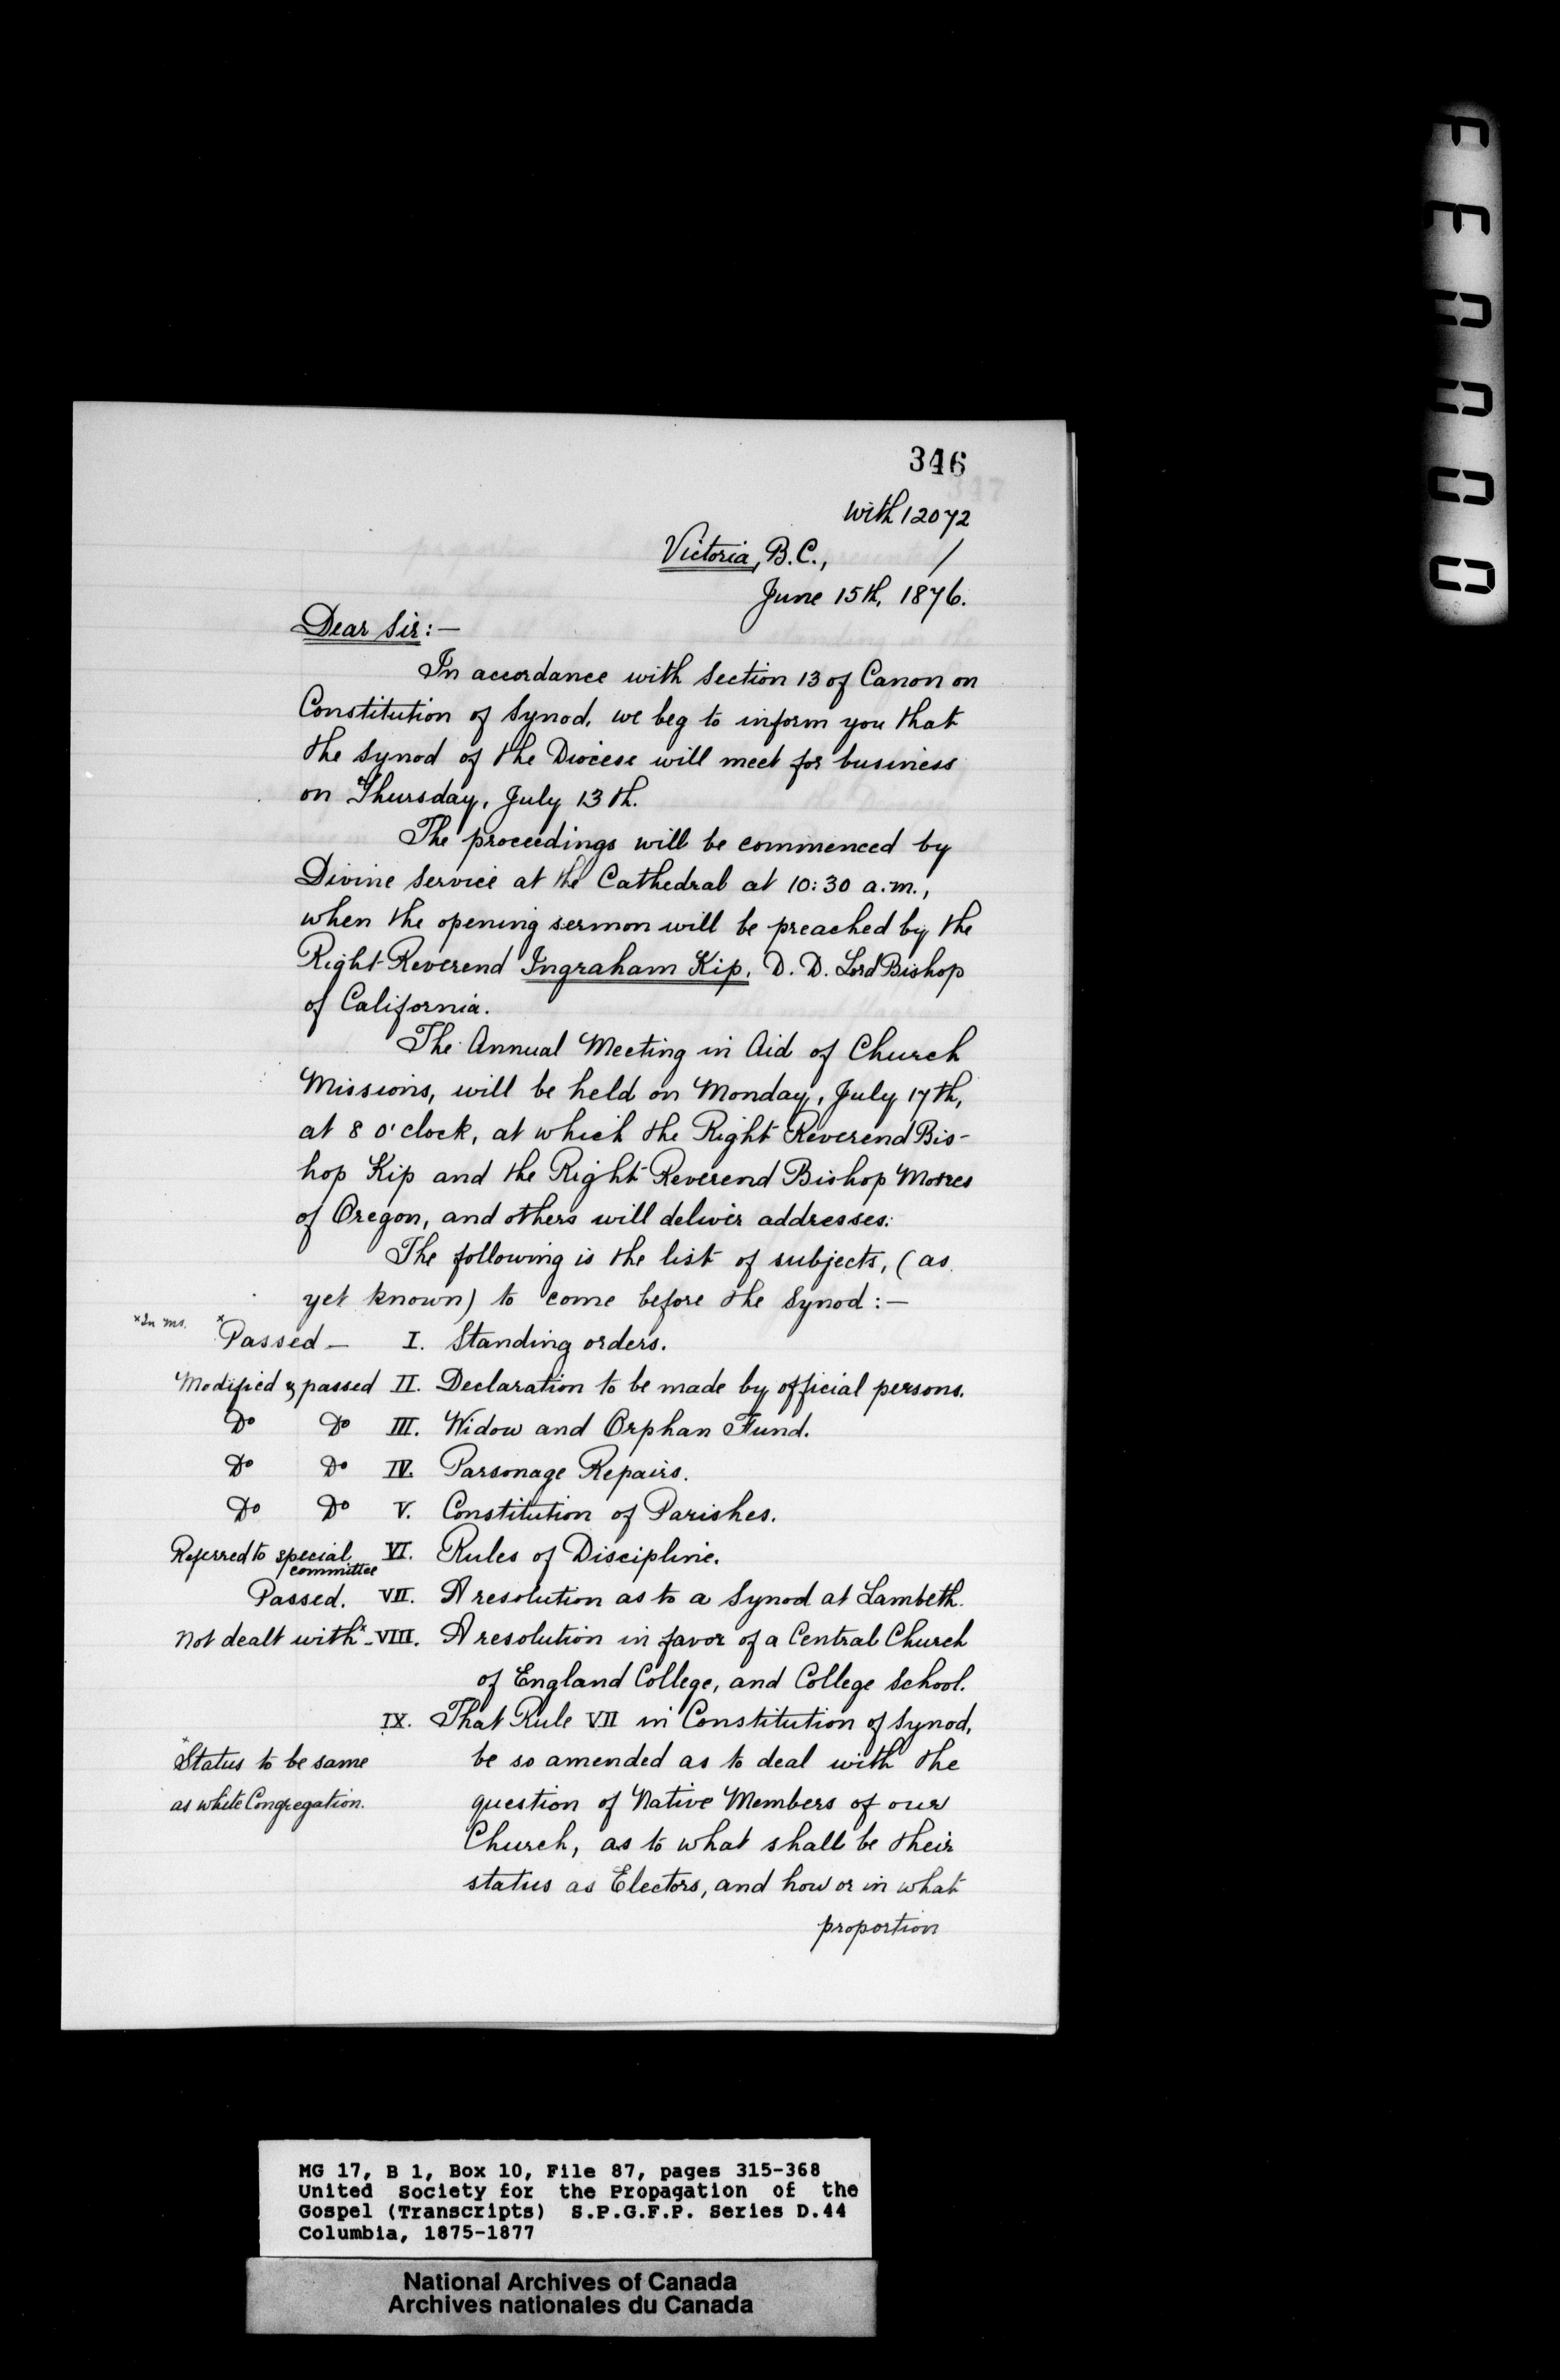 346
with 12072
/
Victoria, B.C.,
June 15th, 1876.
Dear Sir:—
In accordance with Section 13 of Canon on
Constitution of Synod, we beg to inform you that
the Synod of the Diocese will meet for business
on Thursday, July 13th.
The proceedings will be commenced by
Divine Service at the Cathedral at 10:30 a.m.,
when the opening sermon will be preached by the
Right Reverend Ingraham Kip, D. D. Lord Bishop
of California.
The Annual Meeting in Aid of Church
Missions, will be held on Monday, July 17th,
at 8 o'clock, at which the Right Reverend Bis-
hop Kip and the Right Reverend Bishop Morres
of Oregon, and others will deliver addresses.
The following is the list of subjects, (as
yet known) to come before the Synod:—
x In ms. x Passed — I. Standing orders.
Modified & passed II. Declaration to be made by official persons.
Do Do III. Widow and Orphan Fund.
Do Do IV. Parsonage Repairs.
Do Do V. Constitution of Parishes.
Referred to special committee VI. Rules of Discipline.
Passed. VII. A resolution as to a Synod at Lambeth.
Not dealt with x - VIII. A resolution in favor of a Central Church
of England College, and College School.
IX. That Rule VII in Constitution of Synod,
x Status to be same be so amended as to deal with the
as white Congregation. question of Native Members of our
Church, as to what shall be their
status as Electors, and how or in what
proportion
MG 17, B 1, Box 10, File 87, pages 315-368
United Society for the Propagation of the
Gospel (Transcripts) S.P.G.F.P. Series D.44
Columbia, 1875-1877
National Archives of Canada
Archives nationales du Canada